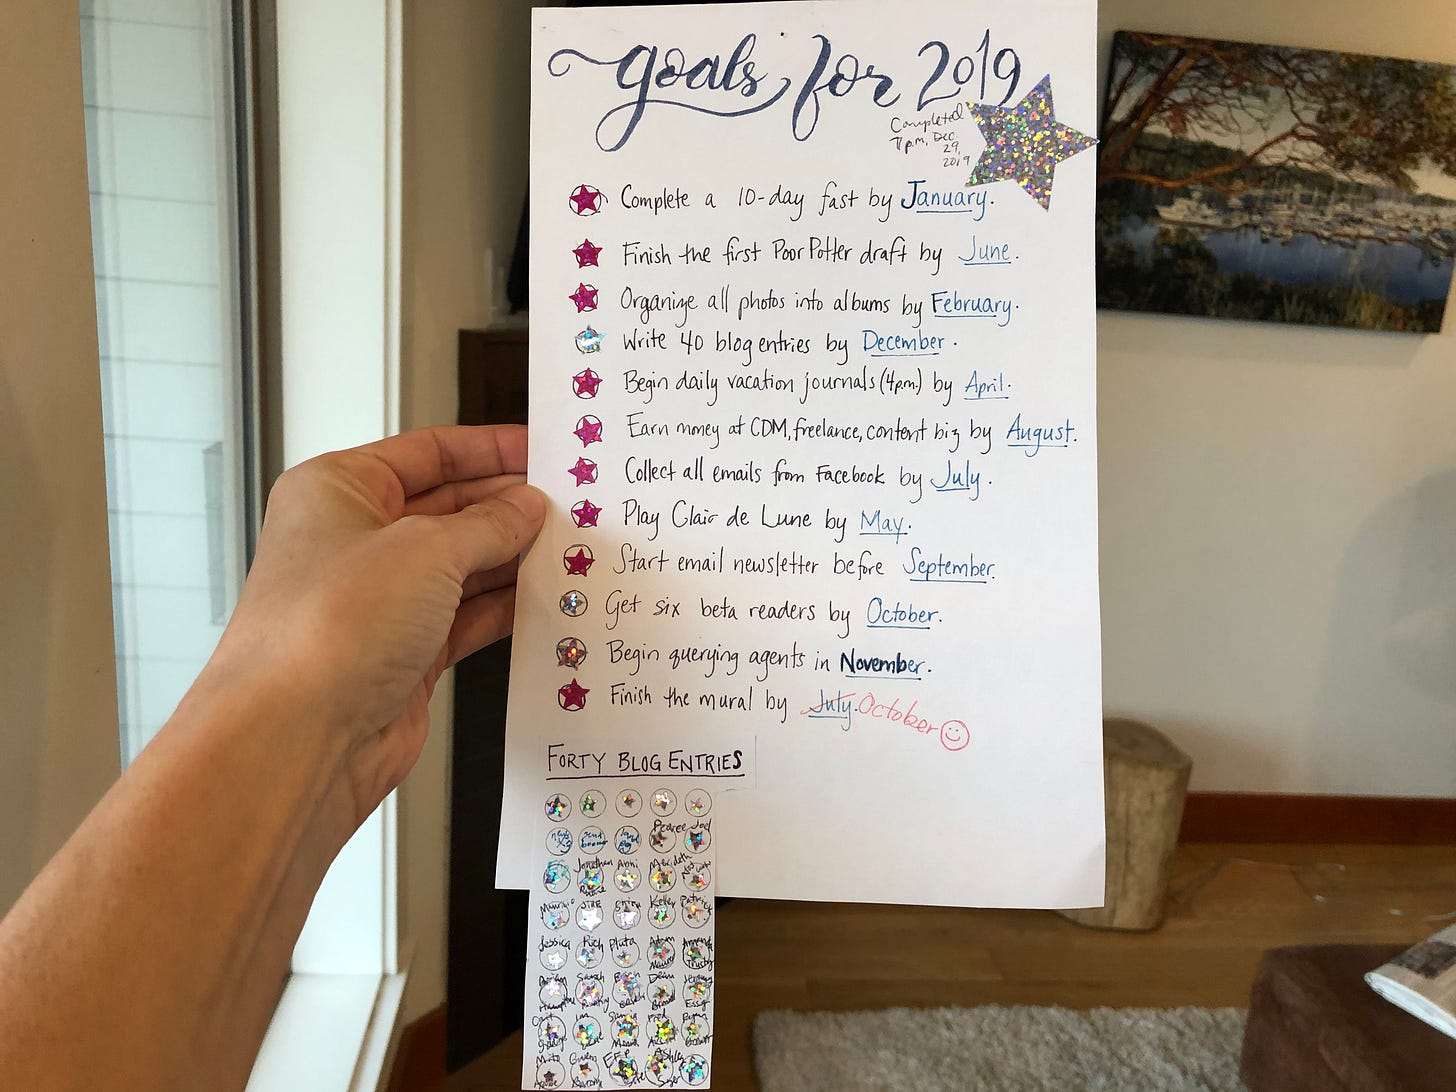 goals for 2019
Completed
7p.m, Dec.
29,
2019
Complete a 10-day fast by January.
Finish the first Poor Potter draft by June.
Organize all photos into albums by February.
Write 40 blog entries by December.
Begin daily vacation journals (4pm.) by April.
Earn money at CDM, freelance, content biz by August.
Collect all emails from Facebook by July.
Play Clair de Lune by May.
Start email newsletter before September.
Get six beta readers by October.
Begin querying agents in November.
Finish the mural by July. October
FORTY BLOG ENTRIES
Pearce Joel
Jonathan Abhi Merideth
Kelley Patrick
Jessica Rich Pluta Adam Amanda
Trusty
Sarah Erin Dean
Gwen Ashley